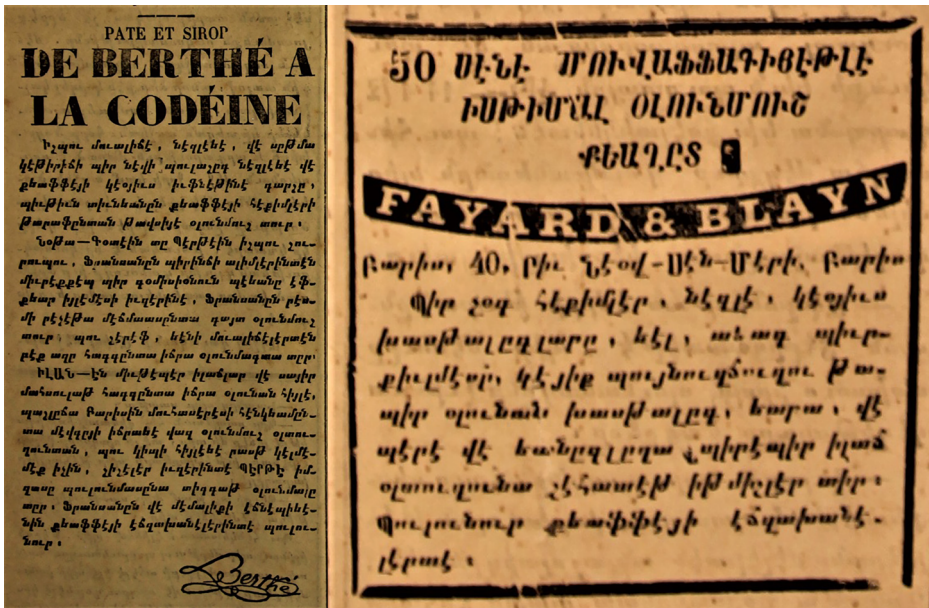 PATE ET SIROP
DE BERTHÉ A
LA CODÉINE
Իշպու մուալիճէ, նէզլէնէ, վէ սըթմա
կէթիրիճի պիր նէվի պուլաշըգ նէզլէնէ վէ
քեաֆֆէյի կէօյիւս իւֆնէթինէ գարշը,
պիւթիւն տիւնեանըն քեաֆֆէյի հէքիմլէրի
թարաֆընտան թավսիյէ օլունմուշ տուր։
Նօթա—Գօտէին տը Պէրթէին իշպու շու-
րուպու, Ֆրանսանըն պիրինճի ալիմլէրինտէն
միւրէքքէպ պիր գօմիսիօնուն պէեանը էֆ-
քեար էյլէմէսի իւզէրինէ, Ֆրանսանըն րէս-
մի րէչէթա մէճմուասընտա գայտ օլունմուշ
տուր, պու շէրէֆ, եէնի մուալիճէլէրտէն
բէք ազը հագգընտա իճրա օլունմագտա տըր։
ԻԼԱՆ—Էն միւթէպէր իլաճլար վէ սայիր
մահսուլաթ հագգընտա իճրա օլունան հիյլէ,
պաշլըճա Բարիսին մուհասէրէսի հէնկեամըն-
տա մէվգըյի իճրաեէ վազ օլունմուշ օլտու-
ղունտան, պու կիպի հիյլէեէ րասթ կէլմէ-
մէք իչին, շիշէլէր իւզէրինտէ ՊԷՐԹԷ իմ-
զասը պուլունմասընա տիգգաթ օլունմալը
տըր։ Ֆրանսանըն վէ մէմալիքի էճնէպիեէ-
նին քեաֆֆէյի էճզախանէլէրինտէ պուլու-
նուր։
Berthé
50 ՍԷՆԷ ՄՈՒՎԱՖՖԱԳԻՅԷԹԼԷ
ԻՍԹԻՄԱԼ ՕԼՈՒՆՄՈՒՇ
ՔԵԱՂԸՏ
FAYARD & BLAYN
Բարիս, 40, րիւ Նէօվ-Սէն-Մէրի, Բարիս
Պիր չօգ հէքիմլէր, նէզլէ, կէօյիւս
խասթալըգլարը, եէլ, ազապ պիւր-
քիւլմէսի, կէյիք պոյնուզճուղու թա-
պիր օլունան խասթալըգ, եարա, վէ
պէրէ վէ եանըգլըղա պիրէպիր իլաճ
օլտուղունա շէհատէթ իթմիշլէր տիր։
Պուլունուր քեաֆֆէյի էճզախանէ-
լէրտէ։